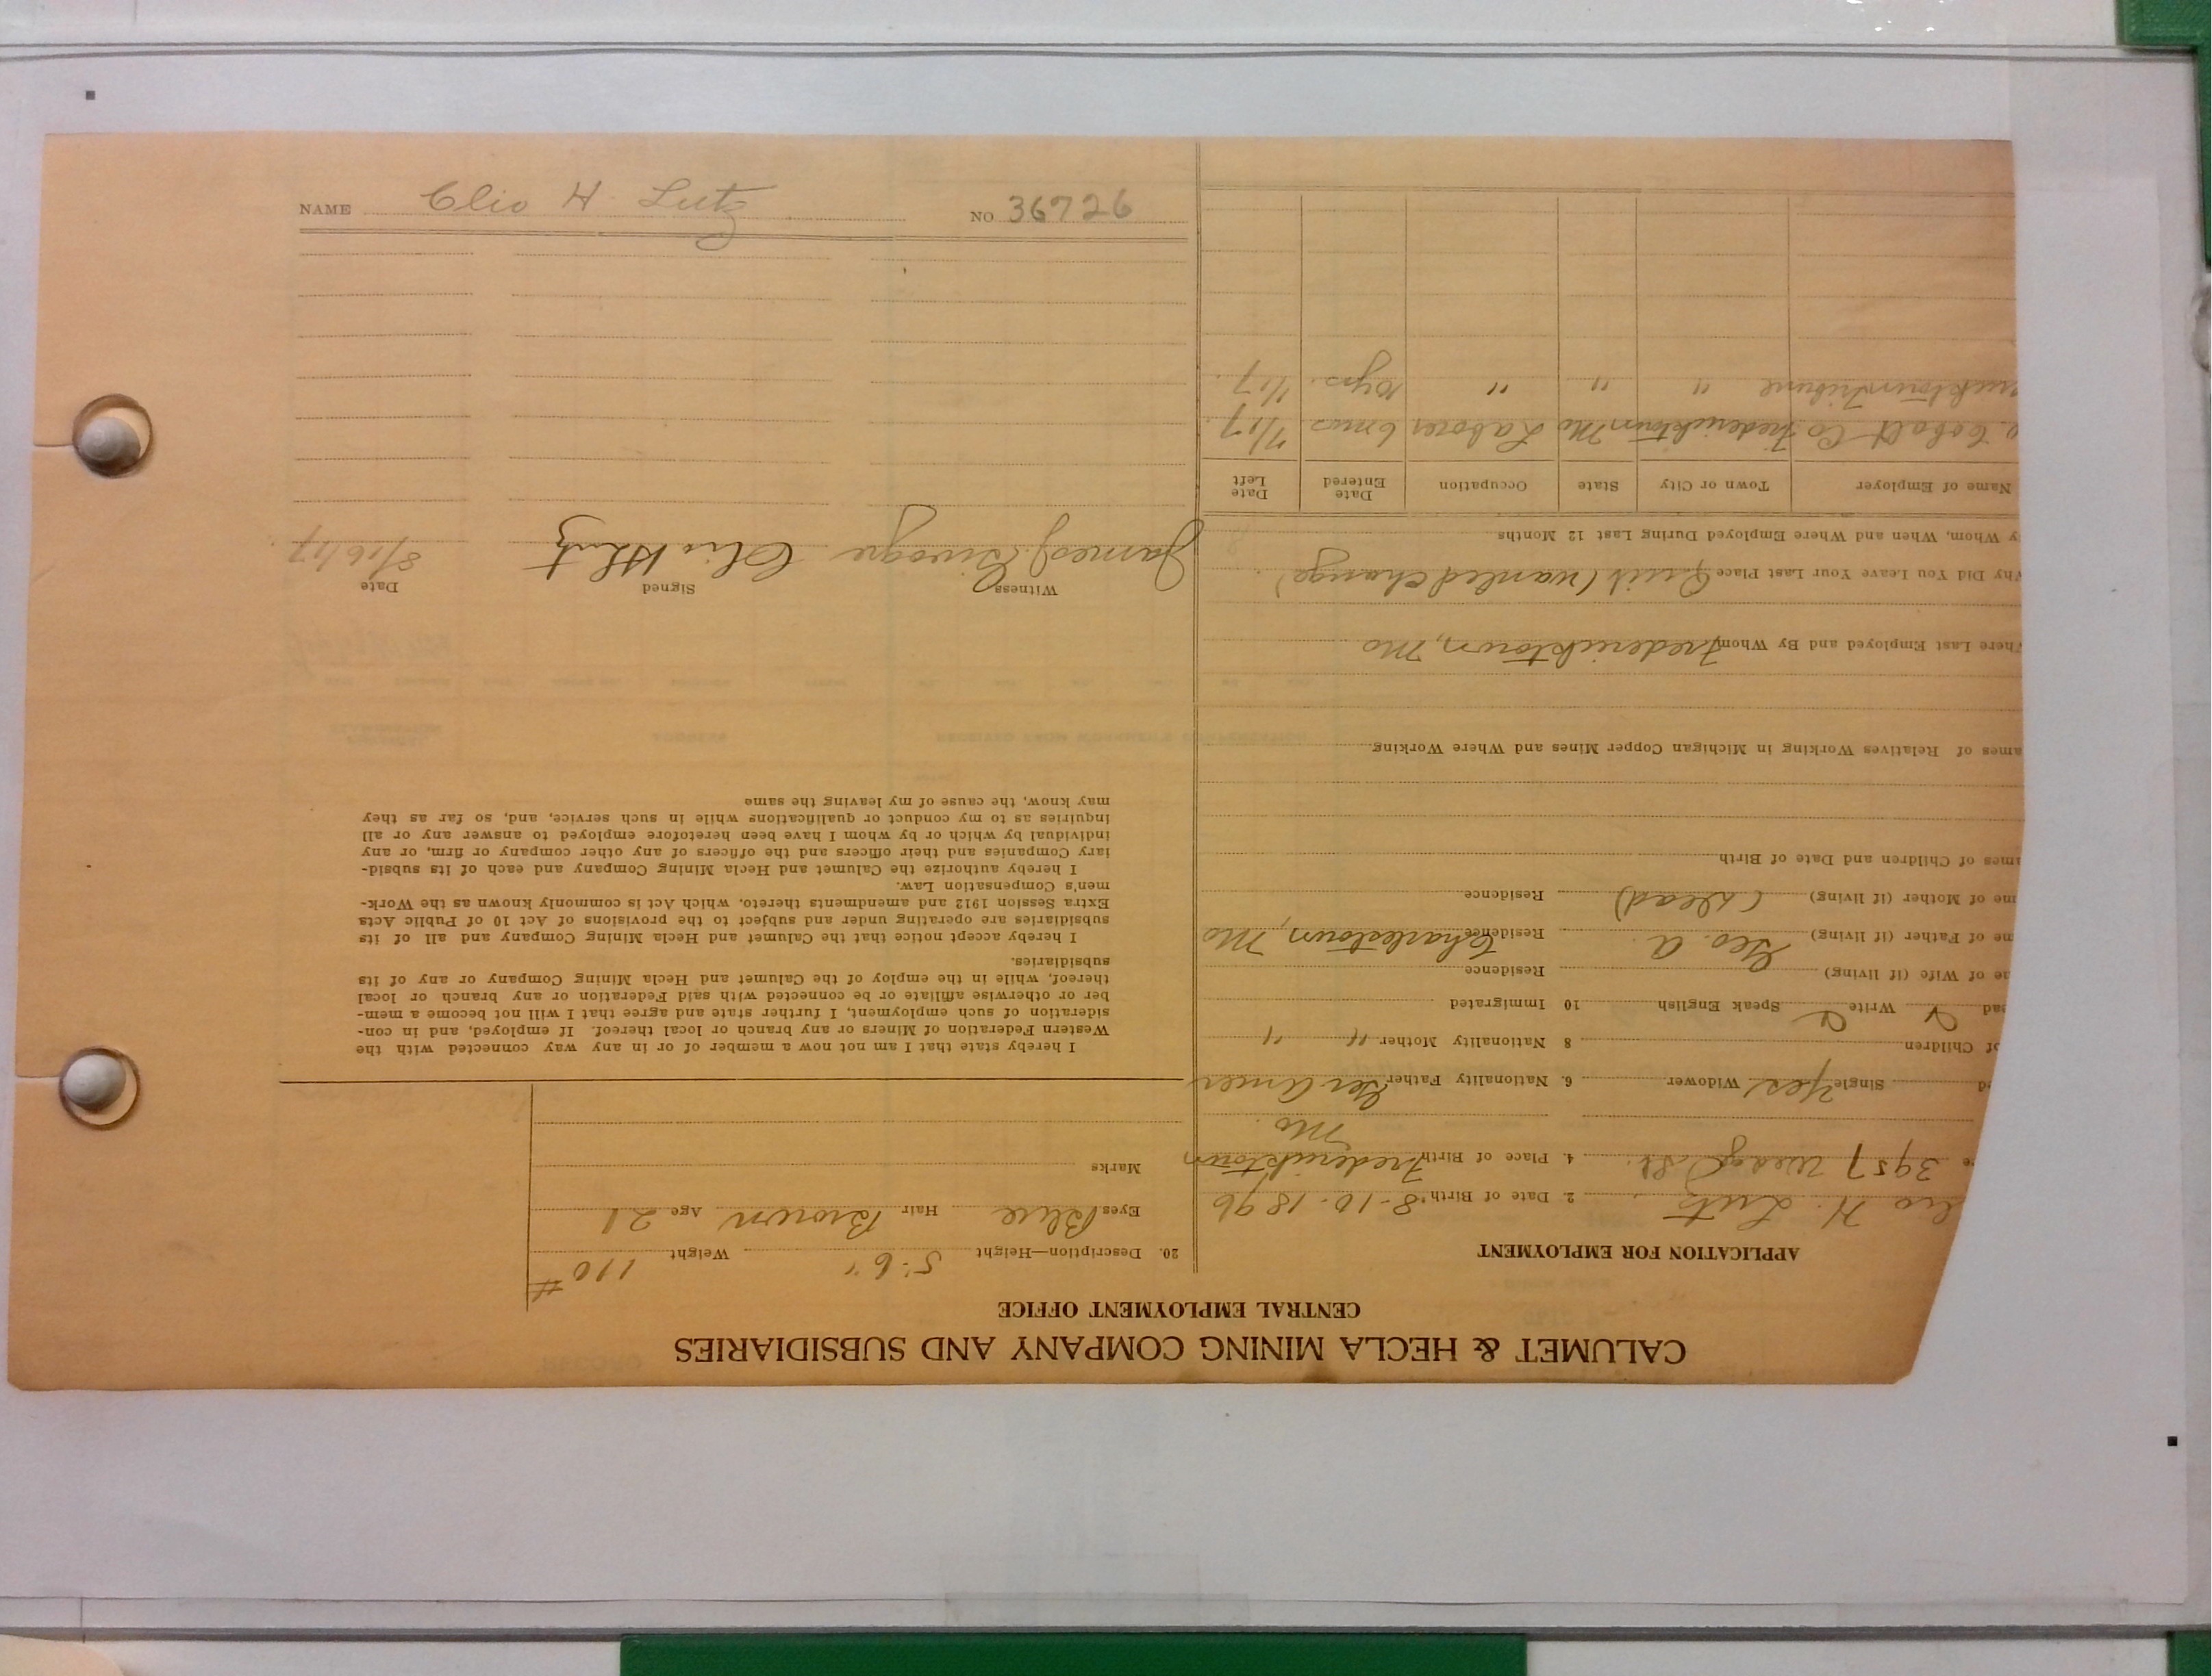 NAME Clio H. Lutz NO 36726
CALUMET & HECLA MINING COMPANY AND SUBSIDIARIES
CENTRAL EMPLOYMENT OFFICE
APPLICATION FOR EMPLOYMENT
H. Lutz 2. Date of Birth 8-10-1896
3957 St. 4. Place of Birth Fredericktown
Mo.
Single Yes Widower 6. Nationality Father Ger Amer
of Children 8 Nationality Mother " "
Write Speak English 10 Immigrated
of Wife (if living) Residence
of Father (if living) Geo. A. Residence Charlestown, Mo
of Mother (if living) (Dead) Residence
of Children and Date of Birth
of Relatives Working in Michigan Copper Mines and Where Working.
Last Employed and By Whom Fredericktown, Mo
Did You Leave Your Last Place Quit (wanted change)
Whom, When and Where Employed During Last 12 Months
Name of Employer Town or City State Occupation Date Entered Date Left
Cobalt Co Fredericktown Mo Laborer 6 mos. 7/17
Tribune " " " 10 yrs. 1/17
20. Description—Height 5'6" Weight 110#
Eyes Blue Hair Brown Age 21
Marks
I hereby state that I am not now a member of or in any way connected with the
Western Federation of Miners or any branch or local thereof. If employed, and in con-
sideration of such employment, I further state and agree that I will not become a mem-
ber or otherwise affiliate or be connected with said Federation or any branch or local
thereof, while in the employ of the Calumet and Hecla Mining Company or any of its
subsidiaries.
I hereby accept notice that the Calumet and Hecla Mining Company and all of its
subsidiaries are operating under and subject to the provisions of Act 10 of Public Acts
Extra Session 1912 and amendments thereto, which Act is commonly known as the Work-
men's Compensation Law.
I hereby authorize the Calumet and Hecla Mining Company and each of its subsid-
iary Companies and their officers and the officers of any other company or firm, or any
individual by which or by whom I have been heretofore employed to answer any or all
inquiries as to my conduct or qualifications while in such service, and, so far as they
may know, the cause of my leaving the same
Witness Signed Date
James J. Clio H Lutz 8/16/17